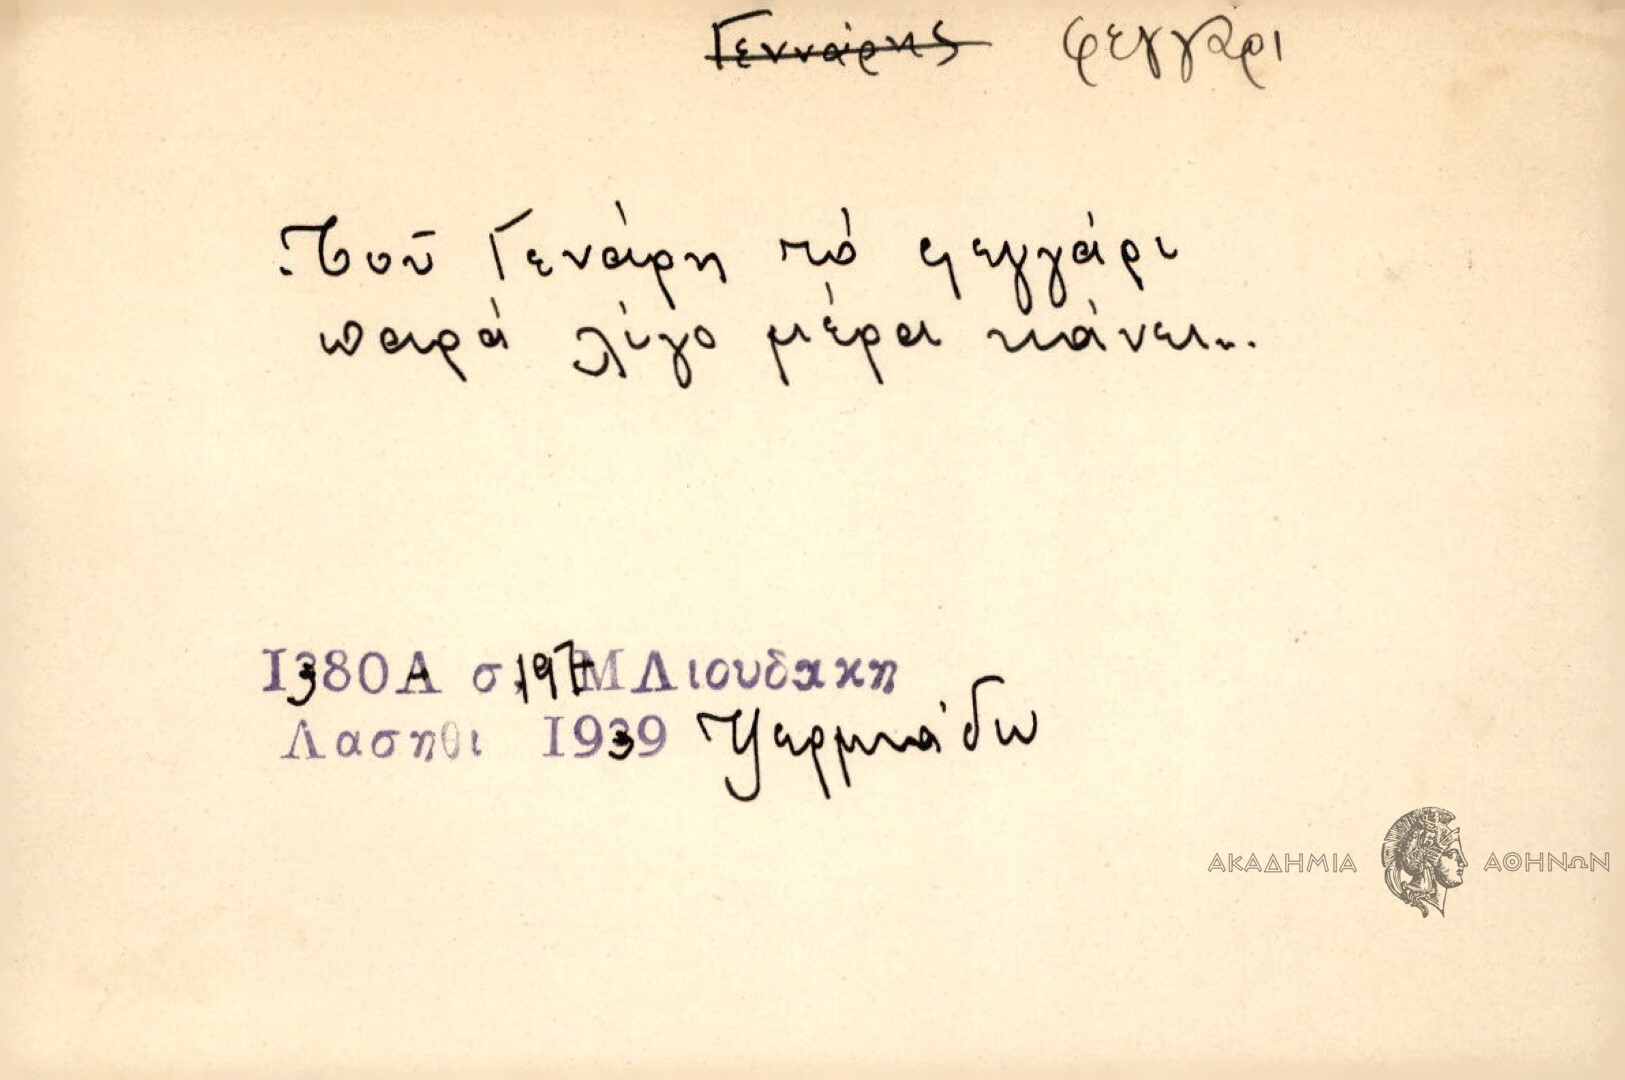 Γεννάρης φεγγάρι
Τοῦ Γενάρη τό φεγγάρι
παρά λίγο μέρα κάνει...
1380Α σ. 197 Μ Λιουδακη
Λασηθι 1939 Τζερμιάδω
ΑΚΑΔΗΜΙΑ ΑΘΗΝΩΝ